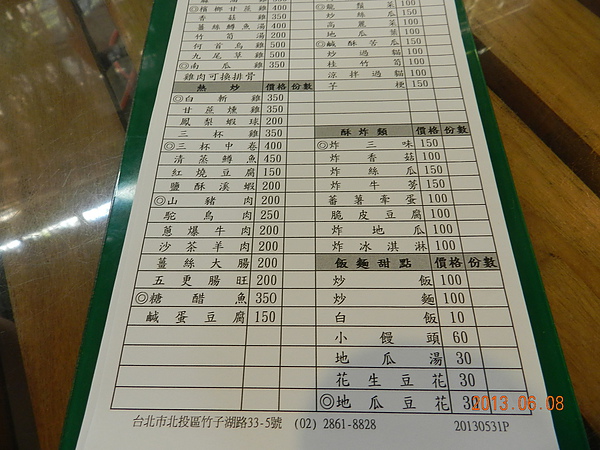 ◎檳榔甘蔗雞 400
香菇雞 350
薑絲鱒魚湯 400
竹筍湯 200
何首烏雞 500
九尾草雞 500
◎南瓜雞 350
雞肉可換排骨
熱炒 價格 份數
◎白斬雞 350
甘蔗燻雞 350
鳳梨蝦球 200
三杯雞 350
◎三杯中卷 400
清蒸鱒魚 450
紅燒豆腐 150
鹽酥溪蝦 200
◎山豬肉 200
駝鳥肉 250
蔥爆牛肉 200
沙茶羊肉 200
薑絲大腸 200
五更腸旺 200
◎糖醋魚 350
鹹蛋豆腐 150
◎龍鬚菜 100
炒絲瓜 150
高麗菜 100
地瓜葉 100
◎鹹酥苦瓜 150
炒過貓 100
桂竹筍 100
涼拌過貓 100
芋梗 150
酥炸類 價格 份數
◎炸三味 150
炸香菇 100
炸絲瓜 150
炸牛蒡 150
蕃薯牽蛋 100
脆皮豆腐 100
炸地瓜 100
炸冰淇淋 100
飯麵甜點 價格 份數
炒飯 100
炒麵 100
白飯 10
小饅頭 60
地瓜湯 30
花生豆花 30
◎地瓜豆花 30
台北市北投區竹子湖路33-5號 (02) 2861-8828 20130531P
2013.06.08